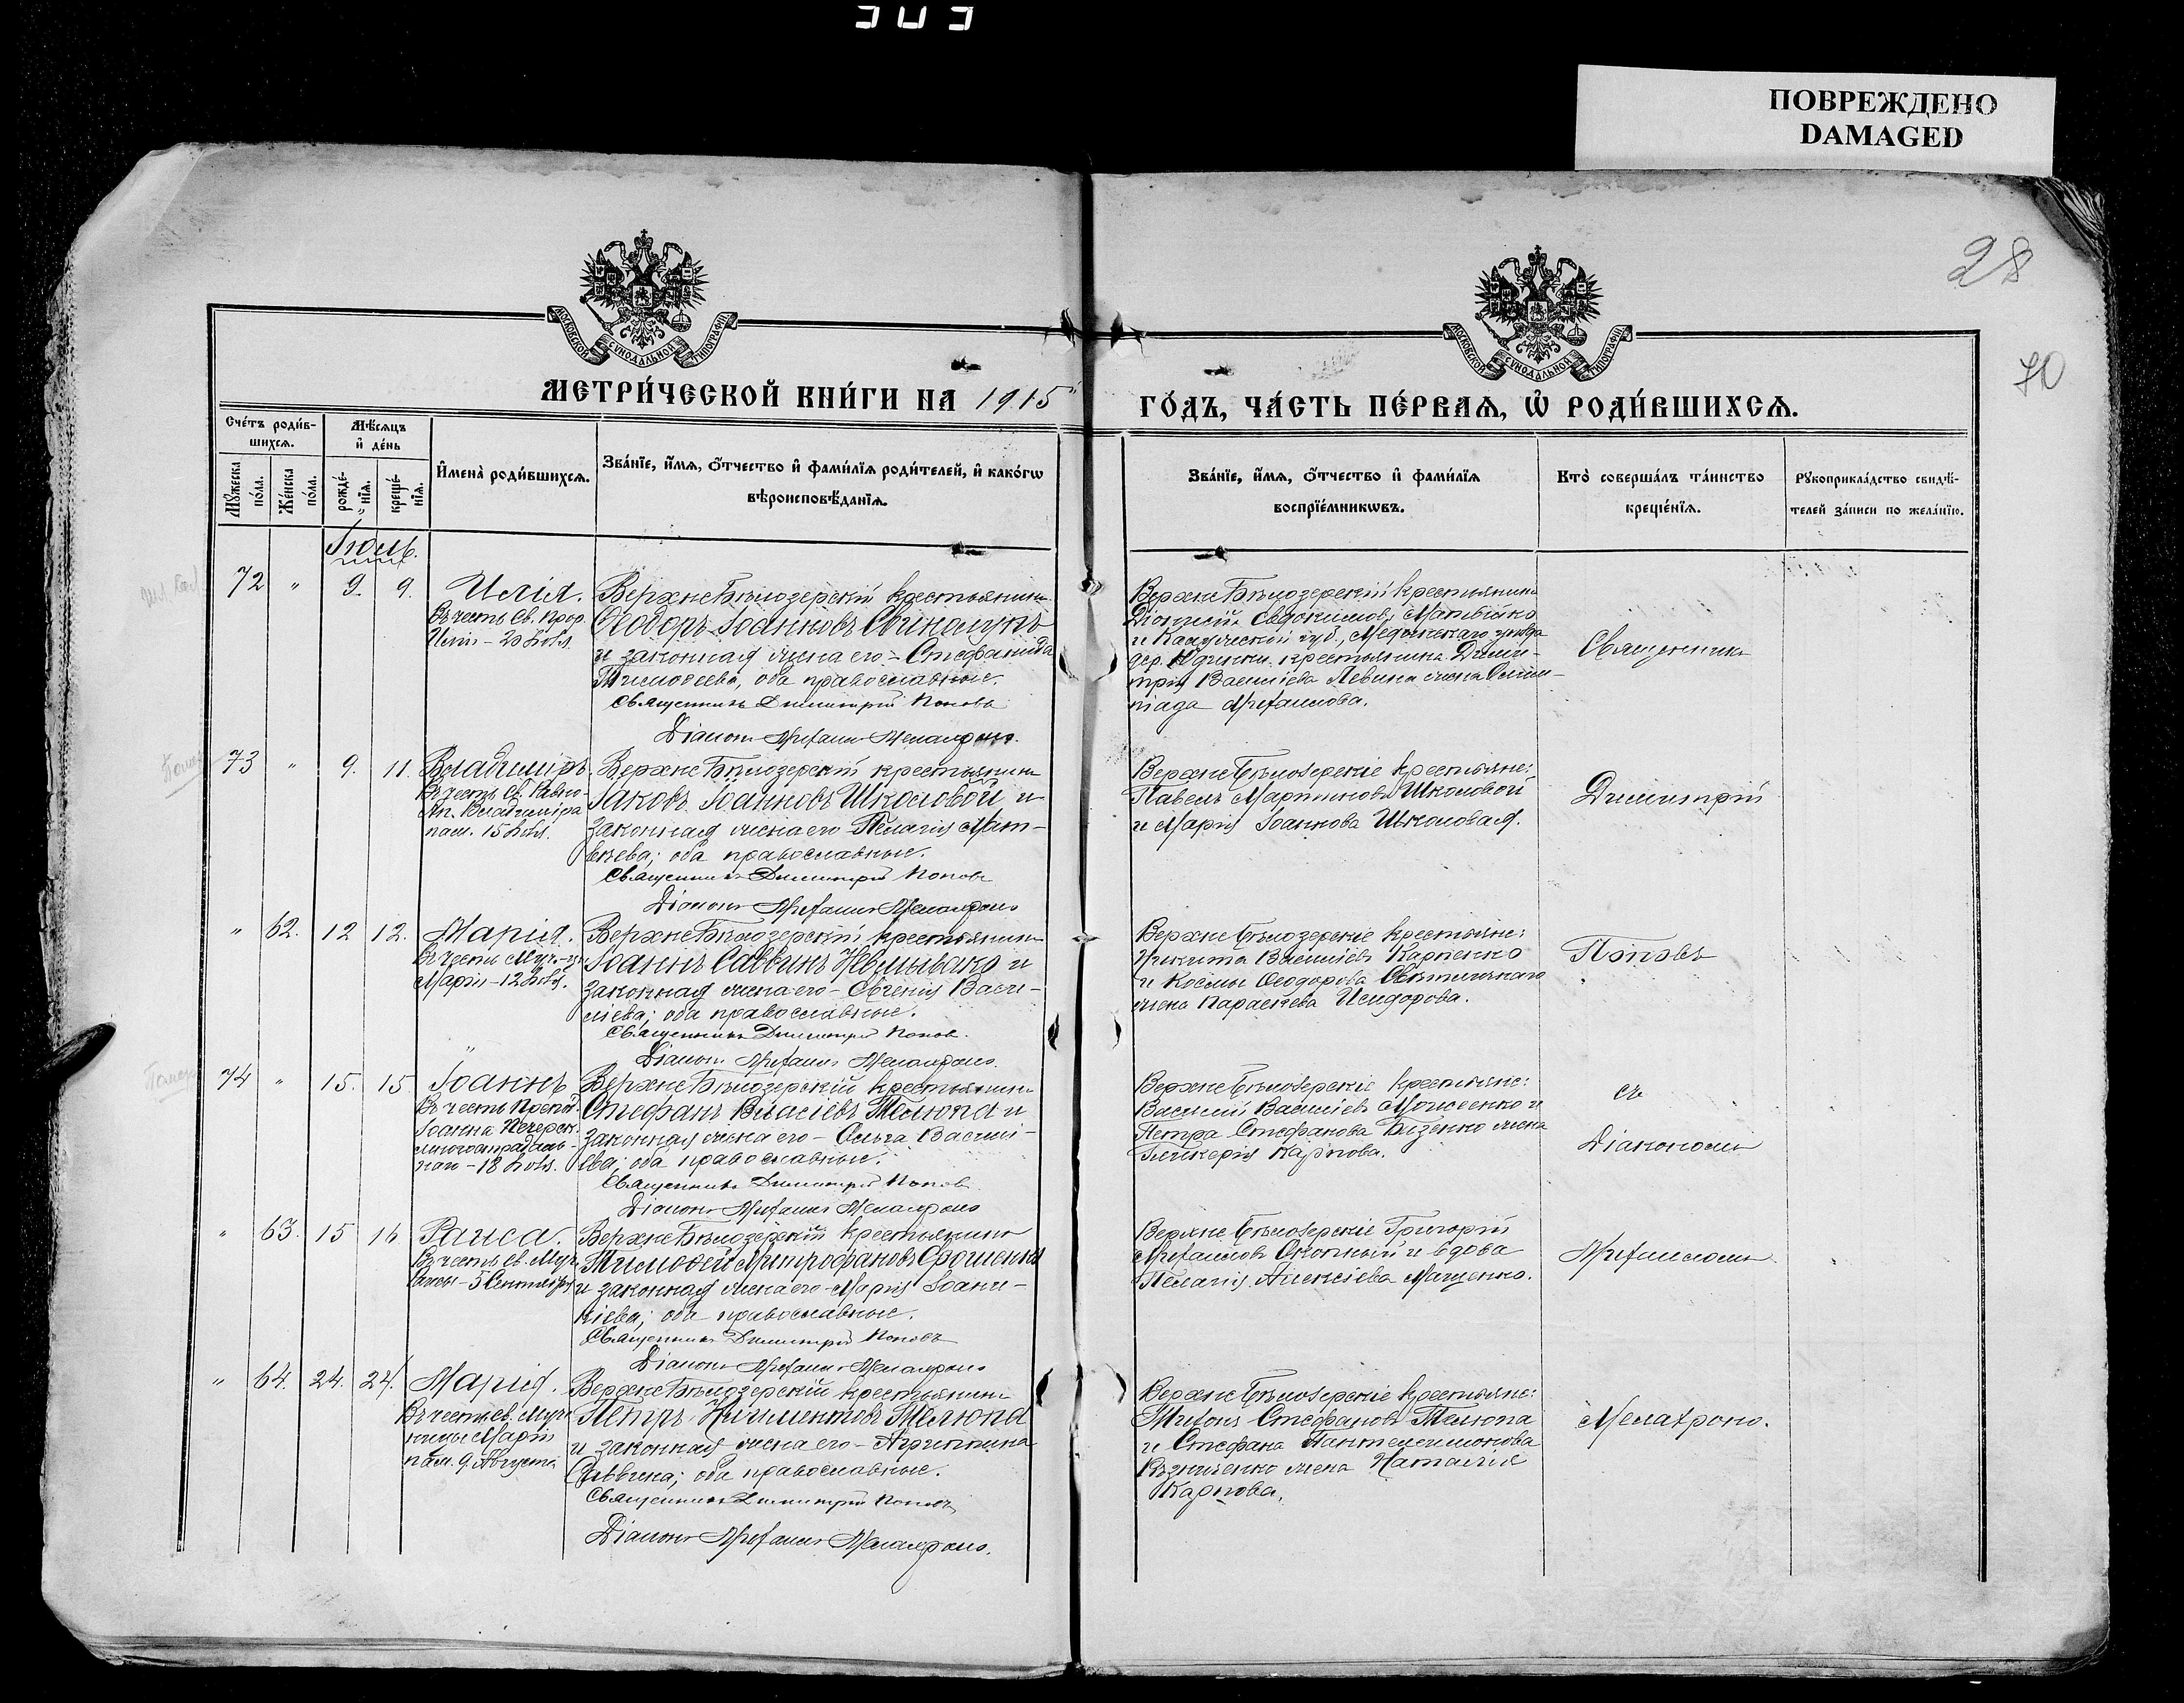 ПОВРЕЖДЕНО
DAMAGED
28
70
МОСКОВСКОЙ СѴНОДАЛЬНОЙ ТИПОГРАФІИ
МОСКОВСКОЙ СѴНОДАЛЬНОЙ ТИПОГРАФІИ
МЕТРИ́ЧЕСКОЙ КНИ́ГИ НА 1915
ГО́ДЪ, ЧА́СТЬ ПЕ́РВАѦ, Ѡ҆ РОДИ́ВШИХСѦ.
Сче́тъ роди́в-
шихсѧ.
Мѣ́сѧцъ
и҆ де́нь
Мꙋ́жеска
по́ла.
Же́нска
по́ла.
рожде́-
нїѧ.
креще́-
нїѧ.
И҆мена̀ роди́вшихсѧ.
Зва́нїе, и҆́мѧ, ѻ҆́тчество и҆ фами́лїѧ роди́телей, и҆ како́гѡ
вѣроисповѣ́данїѧ.
Зва́нїе, и҆́мѧ, ѻ҆́тчество и҆ фами́лїѧ
воспрїе́мникѡвъ.
Кто̀ соверша́лъ та́инство
креще́нїѧ.
Рꙋкоприкла́дство свидѣ́-
телей за́писи по жела́нїю.
Іюль.
72 " 9. 9. Илія.
Въ честь Св. Прор.
Иліи – 20 Іюля
ВерхнеБѣлозерскій крестьянинъ
Ѳеодоръ Іоанновъ
и законная жена его – Стефанида
Тимоѳеева, оба православные.
Священникъ Димитрій Поповъ
Діаконъ
ВерхнеБѣлозерскій крестьянинъ
Діонисій Евдокимовъ Матвійко
и Калужской губ., Медынскаго уѣзда
дер. крестьянина Дими-
трія Васильева Левина жена Олим-
піада
Священникъ
73 " 9. 11. Владиміръ
Въ честь Св. Равно-
Ап. Владиміра
пам. 15 Іюля.
ВерхнеБѣлозерскій крестьянинъ
Іаковъ Іоанновъ Школовой и
законная жена его Пелагія Мат-
вѣева; оба православные.
Священникъ Димитрій Поповъ
Діаконъ
ВерхнеБѣлозерскіе крестьяне:
Павелъ Мартиновъ Школовой
и Марія Іоаннова Школовая.
Димитрій
" 62. 12 12. Марія.
Въ честь Муч-цы
Маріи – 12 Іюля.
ВерхнеБѣлозерскій крестьянинъ
Іоаннъ Саввинъ и
законная жена его – Евгенія Васи-
ліева; оба православные.
Священникъ Димитрій Поповъ.
Діаконъ
ВерхнеБѣлозерскіе крестьяне:
Никита Васильевъ Карпенко
и Космы Ѳеодорова
жена Параскева Исидорова.
Поповъ
74 " 15. 15 Іоаннъ
Въ честь Препод.
Іоанна Печерск.
многострадаль-
наго – 18 Іюля.
ВерхнеБѣлозерскій крестьянинъ
Стефанъ Власіевъ Телюпа и
законная жена его – Ольга Василі-
ева; оба православные.
Священникъ Димитрій Поповъ
Діаконъ
ВерхнеБѣлозерскіе крестьяне:
Василій Васильевъ Моисеенко и
Петра Стефанова жена
Гликерія Карпова.
съ
Діакономъ
" 63. 15 16 Раиса.
Въ честь Св. Муч.
Раисы – 5 Сентября
ВерхнеБѣлозерскій крестьянинъ
Тимоѳей Митрофановъ
и законная жена его – Марія Іоанни-
кіева; оба православные.
Священникъ Димитрій Поповъ
Діаконъ
ВерхнеБѣлозерскіе Григорій
и вдова
Пелагія Алексіева
" 64. 24. 24. Марія.
Въ честь Св. Муче-
ницы Маріи
пам. 9 Августа
ВерхнеБѣлозерскій крестьянинъ
Петръ Телюпа
и законная жена его – Агриппина
Саввина; оба православные.
Священникъ Димитрій Поповъ
Діаконъ
ВерхнеБѣлозерскіе крестьяне:
Стефановъ Телюпа
и Стефана Пантелеимонова
жена Наталія
Карпова.